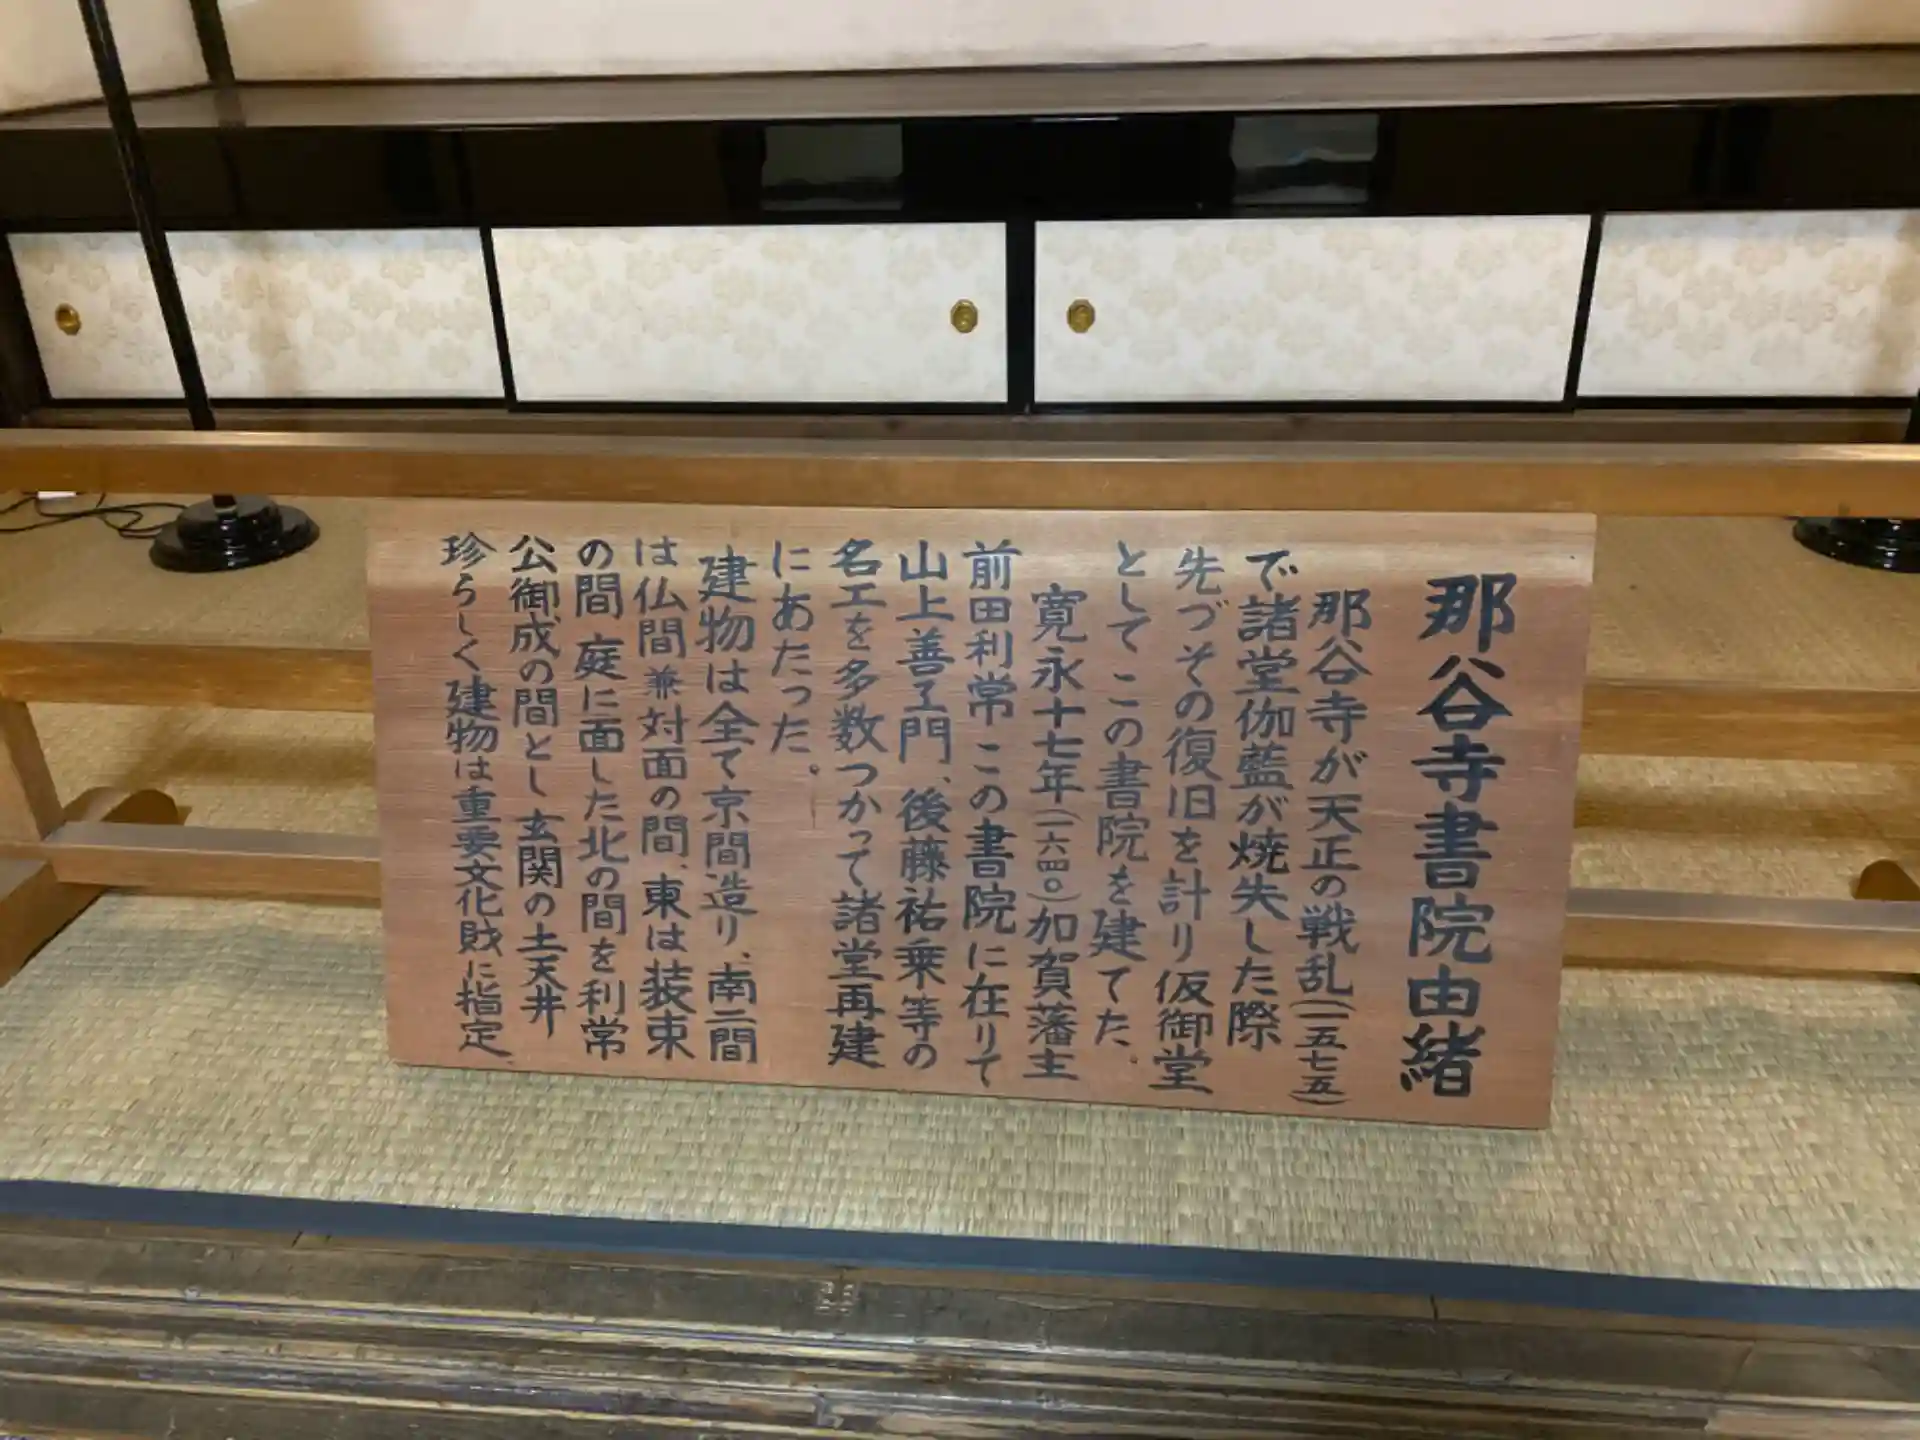 那谷寺書院由緒
那谷寺が天正の戦乱(一五七五)
で諸堂伽藍が焼失した際
先づその復旧を計り仮御堂
としてこの書院を建てた。
寛永十七年(一六四〇)加賀藩主
前田利常この書院に在りて
山上善ヱ門、後藤祐乗等の
名工を多数つかって諸堂再建
にあたった。
建物は全て京間造り、南二間
は仏間兼対面の間、東は装束
の間 庭に面した北の間を利常
公御成の間とし玄関の土天井
珍らしく建物は重要文化財に指定、